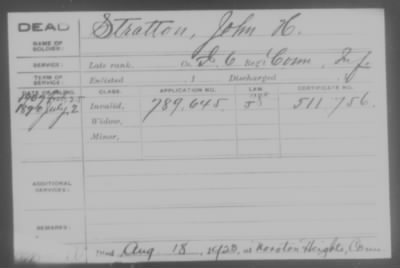 DEAD
NAME OF SOLDIER: Stratton, John H.
SERVICE: Late rank, Co. D, 6 Reg't Conn. Inf.
TERM OF SERVICE: Enlisted , 1 Discharged , 1
DATE OF FILING. CLASS. APPLICATION NO. LAW. CERTIFICATE NO.
1890 July 2 Invalid, 789,645. 511,756.
Widow,
Minor,
ADDITIONAL SERVICES:
REMARKS:
Died Aug 18, 1923, at Noroton Heights, Conn.